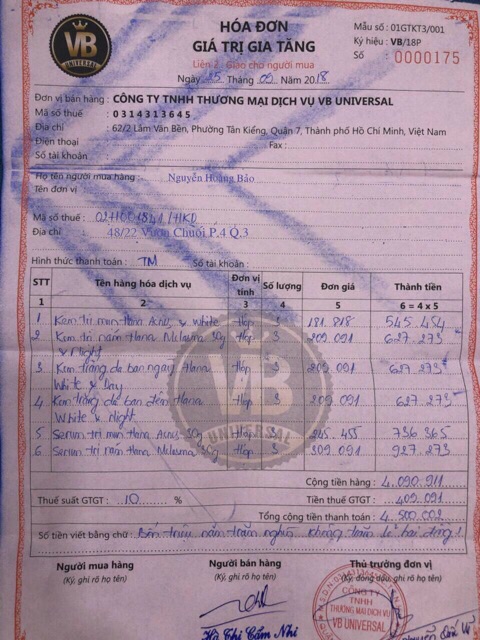 VB
UNIVERSAL
HÓA ĐƠN
GIÁ TRỊ GIA TĂNG
Liên 2: Giao cho người mua
Ngày 25 Tháng 09 Năm 2018
Mẫu số : 01GTKT3/001
Ký hiệu : VB/18P
Số : 0000175
Đơn vị bán hàng : CÔNG TY TNHH THƯƠNG MẠI DỊCH VỤ VB UNIVERSAL
Mã số thuế : 0314313645
Địa chỉ : 62/2 Lâm Văn Bền, Phường Tân Kiểng, Quận 7, Thành phố Hồ Chí Minh, Việt Nam
Điện thoại : Fax :
Số tài khoản :
Họ tên người mua hàng : Nguyễn Hoàng Bảo
Tên đơn vị
Mã số thuế : /HKD
Địa chỉ : 48/22 Vườn Chuối P.4 Q.3
Hình thức thanh toán : TM Số tài khoản :
STT Tên hàng hóa dịch vụ Đơn vị tính Số lượng Đơn giá Thành tiền
1 2 3 4 5 6 = 4 x 5
1 Kem trị mụn Hana Acnes & White Hộp 3 181.818 545.454
2 Kem trị nám Hana Melasma 30g Hộp 3 209.091 627.273
& Night
3 Kem trắng da ban ngày Hana Hộp 3 209.091 627.273
White & Day
4 Kem trắng da ban đêm Hana Hộp 3 209.091 627.273
White & Night
5 Serum trị mụn Hana Acnes 30g Hộp 3 245.455 736.365
6 Serum trị nám Hana Melasma 30g Hộp 3 309.091 927.273
VB
UNIVERSAL
Cộng tiền hàng : 4.090.911
Thuế suất GTGT : 10 % Tiền thuế GTGT : 409.091
Tổng cộng tiền thanh toán : 4.500.002
Số tiền viết bằng chữ : Bốn triệu năm trăm nghìn không trăm lẻ hai đồng!
Người mua hàng Người bán hàng Thủ trưởng đơn vị
(Ký, ghi rõ họ tên) (Ký, ghi rõ họ tên) (Ký, đóng dấu, ghi rõ họ tên)
CÔNG TY
TNHH
THƯƠNG MẠI DỊCH VỤ
VB UNIVERSAL
Hà Thị Cẩm Nhi